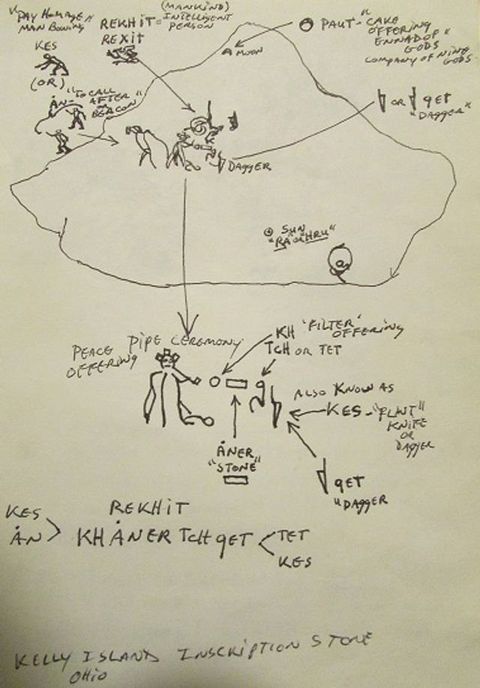 "PAY HOMAGE"
MAN BOWING
KES
(OR)
ÅN- "TO CALL
AFTER"
OR
BEACON
(MANKIND)
REKHIT = INTELLIGENT
REXIT PERSON
MOON
PAUT - "CAKE
OFFERING
ENNAD OF
GODS
COMPANY OF NINE
GODS
OR qET
"DAGGER"
DAGGER
SUN
"RA or HRU"
PEACE PIPE CEREMONY
OFFERING
KH "FILTER" OFFERING
TCH OR TET
ALSO KNOW AS
KES - "FLINT"
KNIFE
OR
DAGGER
ÅNER
"STONE"
qET
"DAGGER
REKHIT
KES
ÅN > KHÅNERTCHqET < TET
KES
KELLY ISLAND INSCRIPTION STONE
OHIO